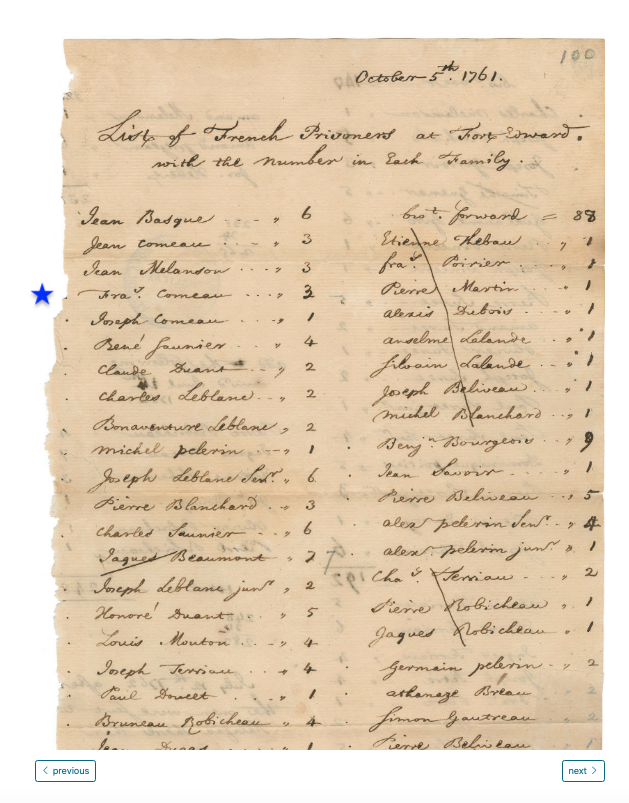 100
October 5th. 1761.
List of French Prisoners at Fort Edward.
with the Number in Each Family.
Jean Basque - - - „ 6
Jean Comeau - - - „ 3
Jean Melanson - - - „ 3
Fra.s Comeau - - - „ 3
Joseph Comeau - - - „ 1
René Saunier - - - „ 4
Claude Duant - - „ 2
Charles Leblanc - - „ 2
Bonaventure Leblanc „ 2
Michel pelerin - - - „ 1
Joseph Leblanc Senr. „ 6
Pierre Blanchard - „ 3
Charles Saunier - - „ 6
Jaques Beaumont „ 7
Joseph Leblanc junr. „ 2
Honoré Duant - - „ 5
Louis Mouton - - „ 4
Joseph Terriau - - „ 4
Paul Doucet - - - „ 1
Bruneau Robicheau „ 4
Jean Dugas - - - „ 1
brot. forward = 88
Etienne Thebau - - „ 1
fra.s Poirier - - „ 1
Pierre Martin - - „ 1
alexis Dubois - - „ 1
anselme Lalande - - „ 1
Silvain Lalande - - „ 1
Joseph Beliveau - - „ 1
Michel Blanchard - - „ 1
Benjn. Bourgeois - - „ 9
Jean Savoir - - - „ 1
Pierre Beliveau - - „ 5
alexr pelerin Senr. „ 4
alexr. pelerin junr. „ 1
Cha.s Terriau - - „ 2
Pierre Robicheau „ 1
Jaques Robicheau „ 1
Germain pelerin - „ 2
athanaze Breau „ 2
Simon Gautreau „ 2
Pierre Beliveau „ 1
previous
next